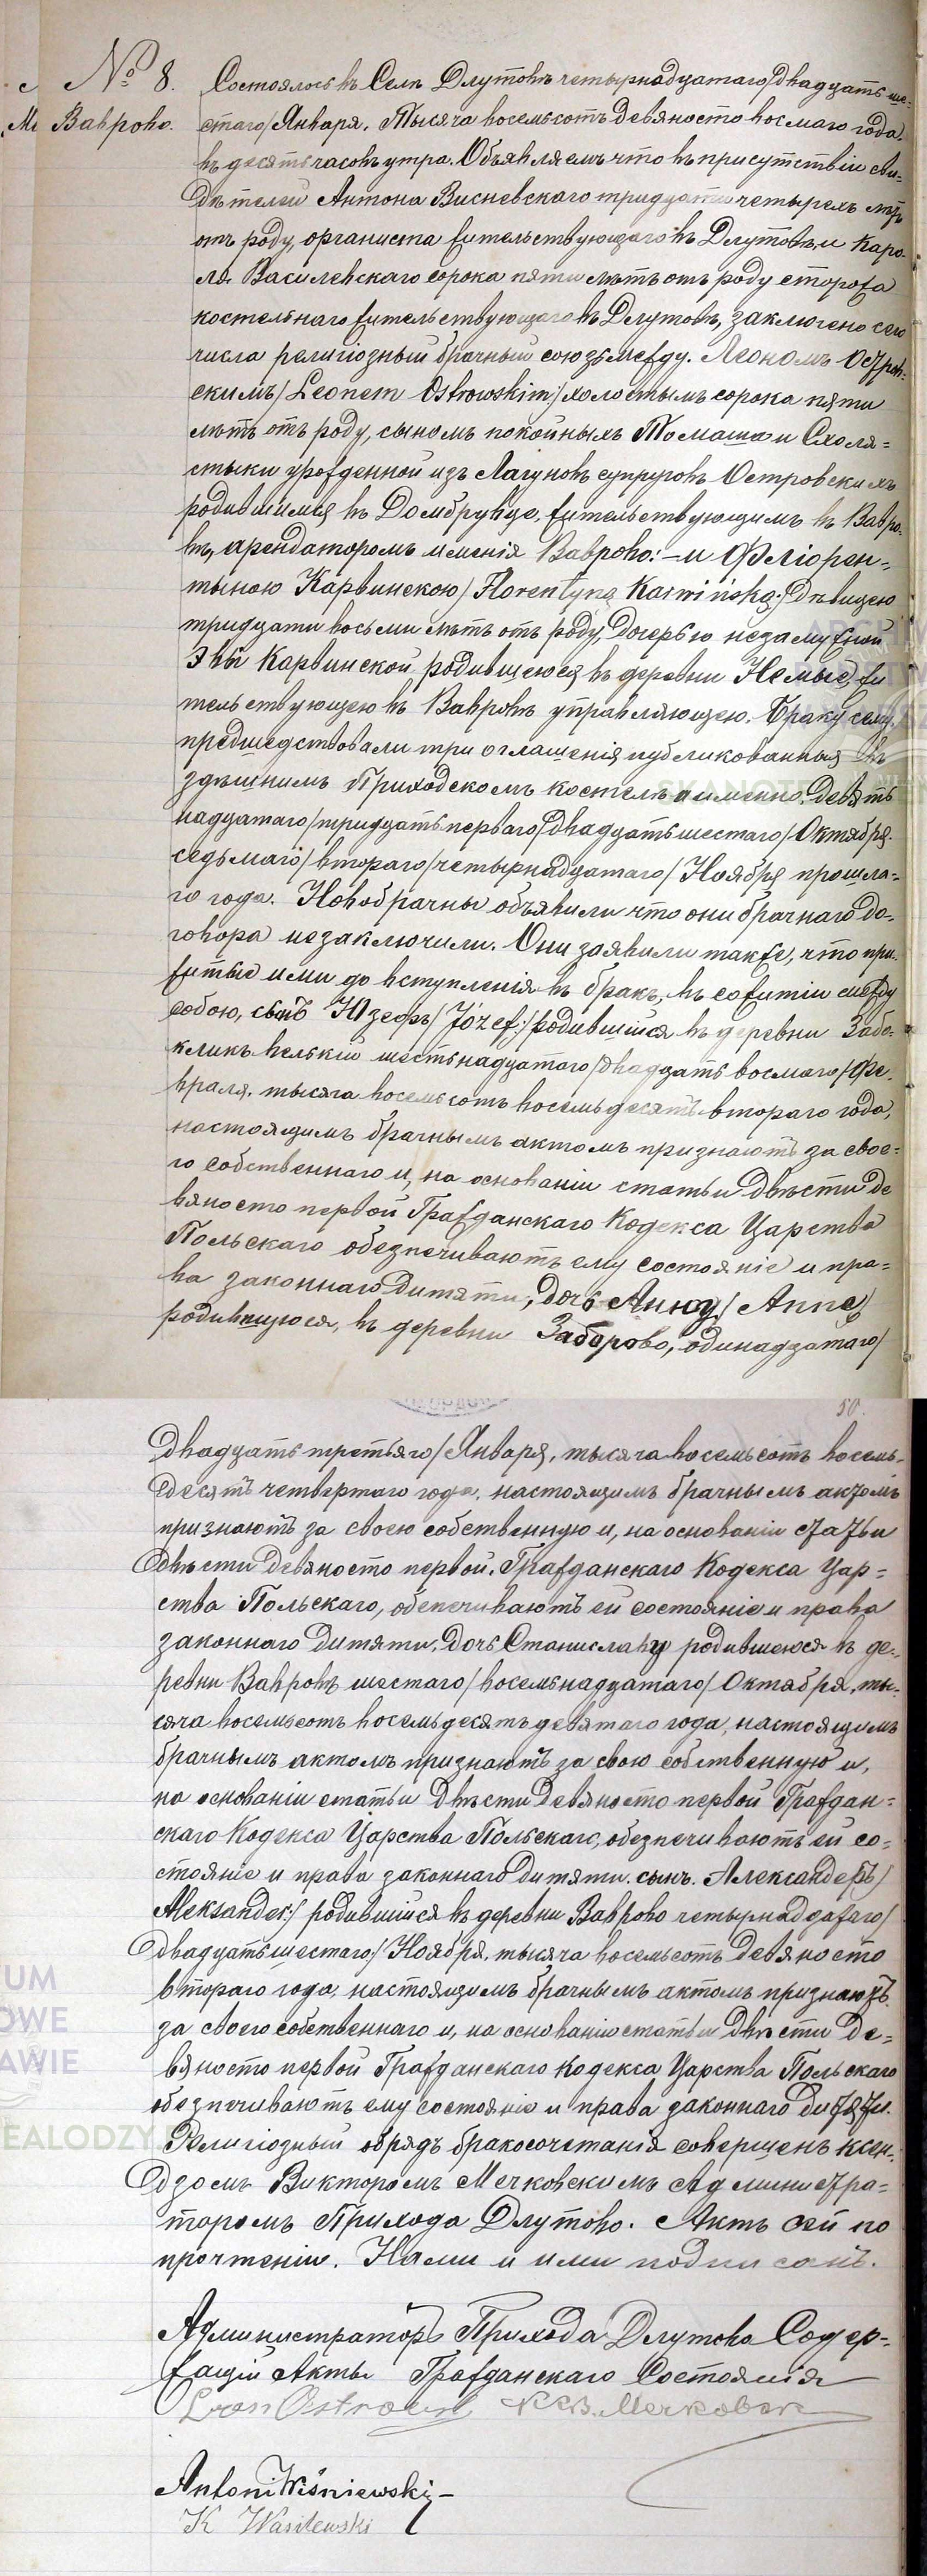 № 8.
Ваврово.
Состоялось въ Селѣ Длутовѣ четырнадцатаго/двадцать ше-
стаго/Января. Тысяча восемьсотъ девяносто восмаго года.
въ десять часовъ утра. Объявляемъ что въ присутствіи сви-
дѣтелей Антона Висневскаго тридцати четырехъ лѣтъ
отъ роду, органиста жительствующаго въ Длутовѣ, и Каро-
ля Василевскаго сорока пяти лѣтъ отъ роду сторожа
костельнаго жительствующаго въ Длутовѣ, заключено сего
числа религіозный брачный союзъ между. Леономъ Остров-
скимъ/Leonem Ostrowskim:/холостымъ сорока пяти
лѣтъ отъ роду, сыномъ покойныхъ Томаша и Схоля-
стыки урожденной изъ Лагуновъ супруговъ Островскихъ
родившимся въ Домбрувце, жительствующимъ въ Вавро-
вѣ, арендаторомъ именія Ваврово:—и Фліорен-
тыною Карвинскою/Florentyną Karwińską:/дѣвицею
тридцати восьми лѣтъ отъ роду, дочерью незамужной
Эвы Карвинской родившеюся въ деревни Немые, жи
тельствующею въ Вавровѣ управляющею. Браку сему,
предшедствовали три оглашенія публикованныя въ
здѣшнимъ Приходскомъ костелѣ а именно: девять
надцатаго/тридцать перваго/двадцать шестаго/Октября.
седьмаго/втораго/четырнадцатаго/Ноября прошла-
го года. Новобрачны объявили что они брачнаго до-
говора незаключили. Они заявили также, что при-
житые ими до вступленія въ бракъ, въ сожитіи между
собою, сынъ Юзефъ/Józef:/родившійся въ деревни Забо-
кликъ велькій шестьнадцатаго/двадцать восмаго/Фе-
враля. тысяча восемьсотъ восемьдесятъ втораго года,
настоящимъ брачнымъ актомъ признаютъ за свое-
го собственнаго и, на основаніи статьи двѣсти де
вяносто первой Гражданскаго Кодекса Царства
Польскаго обезпечиваютъ ему состояніе и пра-
ва законнаго дитяти, дочь Анну/Annę/
родившуюся, въ деревни Заборово, одинадцатаго/
двадцать третьяго/Января, тысяча восемьсотъ восемь-
десятъ четвертаго года. настоящимъ брачнымъ актомъ
признаютъ за свою собственную и, на основаніи статьи
двѣсти девяносто первой. Гражданскаго Кодекса Цар-
ства Польскаго, обепечиваютъ ей состояніе и права
законнаго дитяти, дочь Станиславу родившеюся въ де-
ревни Вавровѣ шестаго/восемьнадцатаго/Октября, ты-
сяча восемьсотъ восемьдесятъ девятаго года, настоящимъ
брачнымъ актомъ признаютъ за свою собственную и,
на основаніи статьи двѣсти девяносто первой Граждан-
скаго Кодекса Царства Польскаго, обезпечиваютъ ей со-
стояніе и права законнаго дитяти. сынъ. Александеръ/
Aleksander:/родившійся въ деревни Ваврово четырнадцатаго/
двадцать шестаго/Ноября, тысяча восемьсотъ девяносто
втораго года, настоящимъ брачнымъ актомъ признаютъ.
за своего собственнаго и, на основаніи статьи двѣсти де-
вяносто первой Гражданскаго Кодекса Царства Польскаго
обезпечиваютъ ему состояніе и права законнаго дитяти.
Религіозный обрядъ бракосочетанія совершенъ ксен-
дзомъ Викторомъ Мечковскимъ Администра-
торомъ Прихода Длутово. Актъ сей по
прочтеніи. Нами и ими подписанъ.
Администраторъ Прихода Длутово Содер-
жащій Акты Гражданскаго Состоянія
Leon Ostrowski Кс В. Мечковск
Antoni Wiśniewski—
K Wasilewski